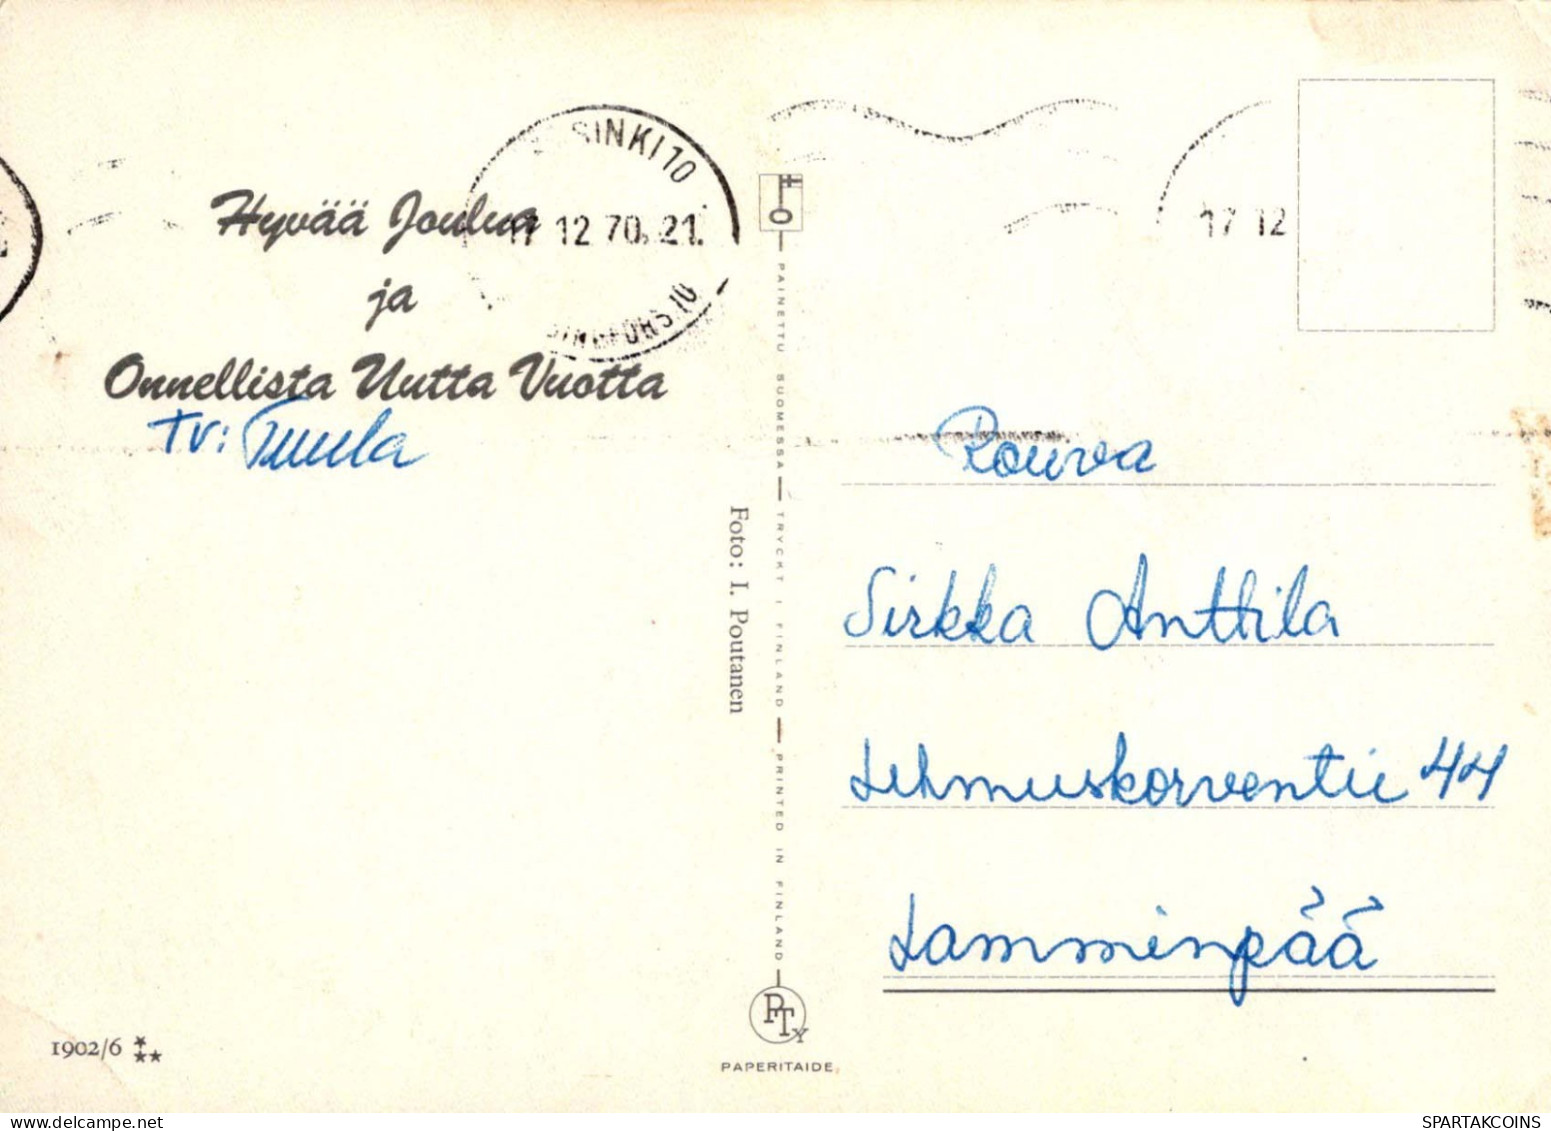 SINKI 10
17 12 70. 21.
17 12
Hyvää Joulua
ja
Onnellista Uutta Vuotta
Tv: Tuula
PAINETTU SUOMESSA — TRYCKT I FINLAND — PRINTED IN FINLAND
Foto: I. Poutanen
Rouva
Sirkka Anttila
Lehmuskorventie 44
Lamminpää
1902/6
PTY
PAPERITAIDE
SPARTAKCOINS